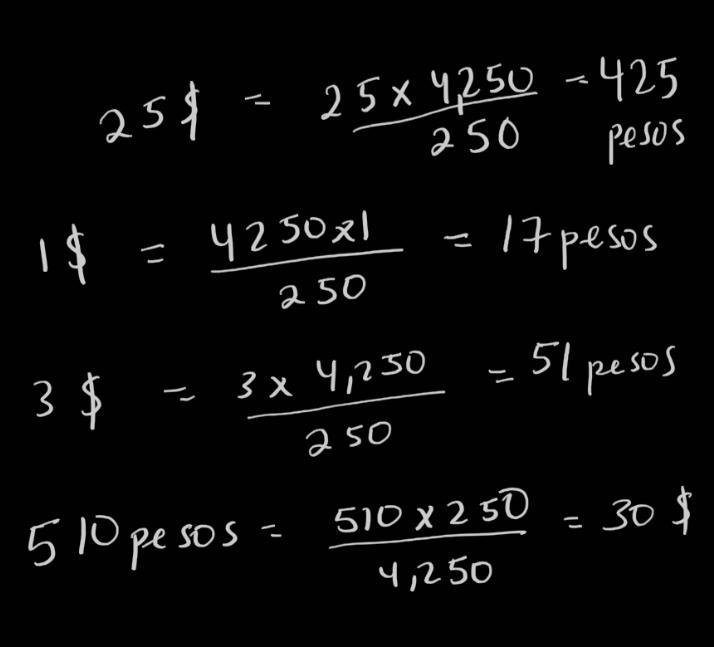 25$ = 25 x 4,250 / 250 = 425 pesos
1$ = 4250x1 / 250 = 17 pesos
3$ = 3 x 4,250 / 250 = 51 pesos
510 pesos = 510 x 250 / 4,250 = 30 $